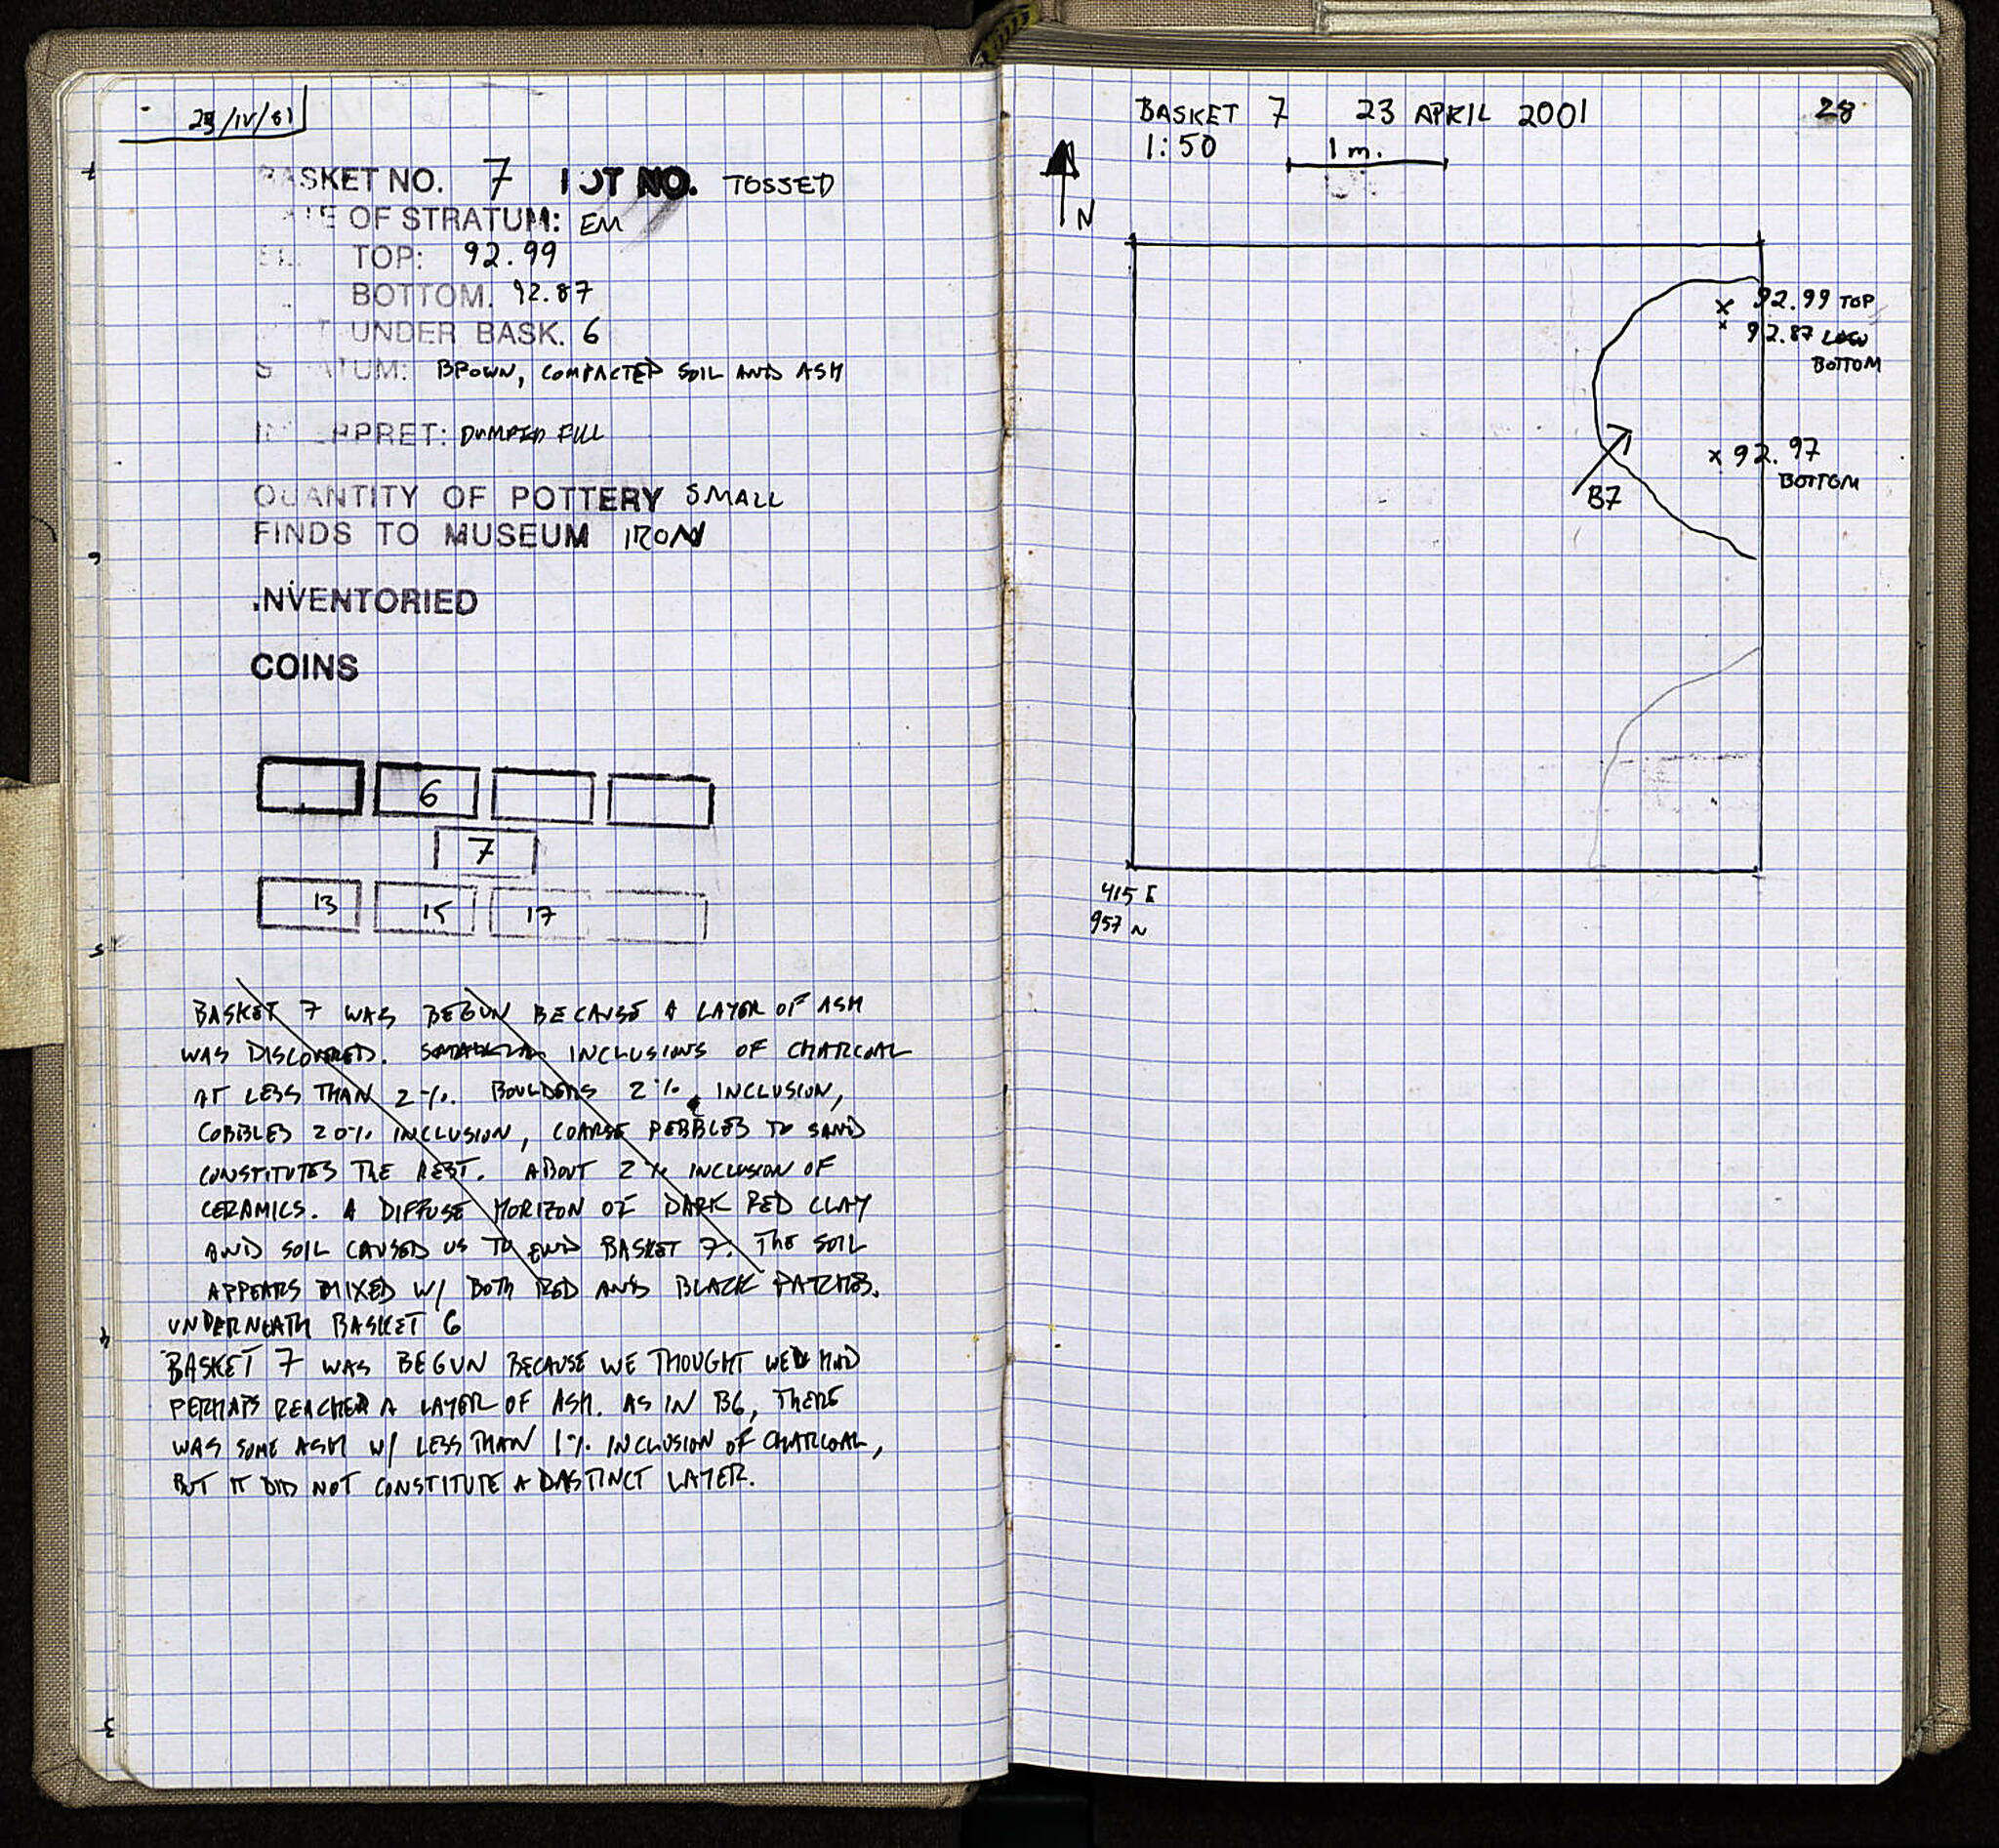 23/IV/01
BASKET NO. 7 LOT NO. TOSSED
OF STRATUM: EM
TOP: 92.99
BOTTOM. 92.87
UNDER BASK. 6
STRATUM: BROWN, COMPACTED SOIL AND ASH
INTERPRET: DUMPED FILL
QUANTITY OF POTTERY SMALL
FINDS TO MUSEUM IRON
INVENTORIED
COINS
6
7
13 15 17
BASKET 7 WAS BEGUN BECAUSE A LAYER OF ASH
WAS DISCOVERED. INCLUSIONS OF CHARCOAL
AT LESS THAN 2%. BOULDERS 2% INCLUSION,
COBBLES 20% INCLUSION, COARSE PEBBLES TO SAND
CONSTITUTES THE REST. ABOUT 2% INCLUSION OF
CERAMICS. A DIFFUSE HORIZON OF DARK RED CLAY
AND SOIL CAUSED US TO END BASKET 7. THE SOIL
APPEARS MIXED W/ BOTH RED AND BLACK PATCHES.
UNDERNEATH BASKET 6
BASKET 7 WAS BEGUN BECAUSE WE THOUGHT WE HAD
PERHAPS REACHED A LAYER OF ASH. AS IN B6, THERE
WAS SOME ASH W/ LESS THAN 1% INCLUSION OF CHARCOAL,
BUT IT DID NOT CONSTITUTE A DISTINCT LAYER.
7
6
5
4
3
BASKET 7 23 APRIL 2001 28
1:50 1 m.
N
x 92.99 TOP
x 92.87 LOW
BOTTOM
x 92.97
BOTTOM
B7
415 E
957 N